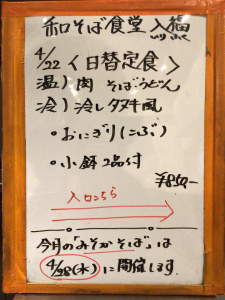 和そば食堂 入福
4/22 〈日替定食〉
温) 肉 そばうどん
冷) 冷しタヌキ風
・おにぎり(こぶ)
・小鉢2品付
¥850-
入口こちら
今月の「みそかそば」は
4/28(木)に開催します。